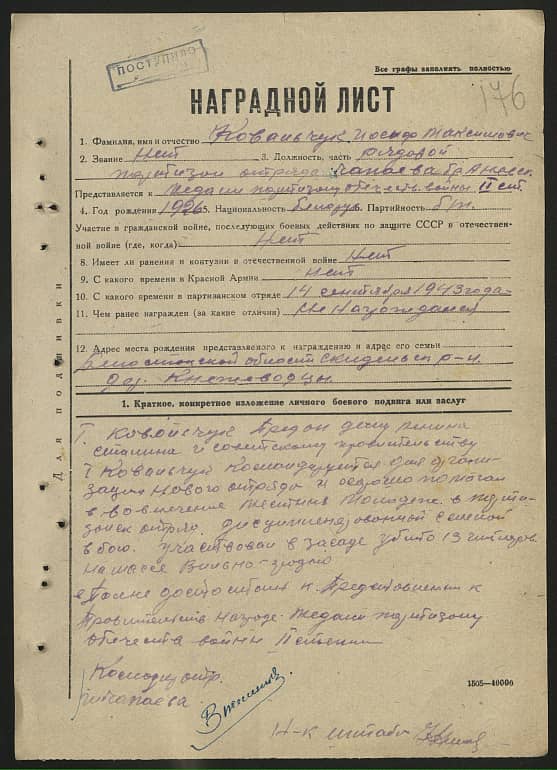 ПОСТУПИЛО
Все графы заполнять полностью
176
НАГРАДНОЙ ЛИСТ
1. Фамилия, имя и отчество Ковальчук Иосиф Максимович
2. Звание Нет 3. Должность, часть рядовой
партизан отряда Чапаева бр.
Представляется к медали партизану отечеств войны II ст.
4. Год рождения 1926 5. Национальность Белорус 6. Партийность б/п.
Участие в гражданской войне, последующих боевых действиях по защите СССР в отечествен-
ной войне (где, когда) Нет
8. Имеет ли ранения и контузии в отечественной войне Нет
9. С какого времени в Красной Армии Нет
10. С какого времени в партизанском отряде 14 сентября 1943 года
11. Чем ранее награжден (за какие отличия) Не Награждался
12. Адрес места рождения представляемого к награждению и адрес его семьи
Белостокской области Скидельск р-н.
дер. Княжеводцы.
1. Краткое, конкретное изложение личного боевого подвига или заслуг
Т. Ковальчук Предан делу Ленина
Сталина и советскому правительству
Т Ковальчук Командируется для органи-
зации Нового отряда и помогал
в вовлечение местных Молодежь в парти-
занск отряд. дисциплинированной смелой
в бою. Участвовал в засаде убито 13
На шоссе Вильно-Гродно
достоин к Представлению к
Правительств Награде-Медали партизану
Отечеств войны II степени
Для подшивки
Командир отр.
Чапаева
1505—40000
Н-к штаба